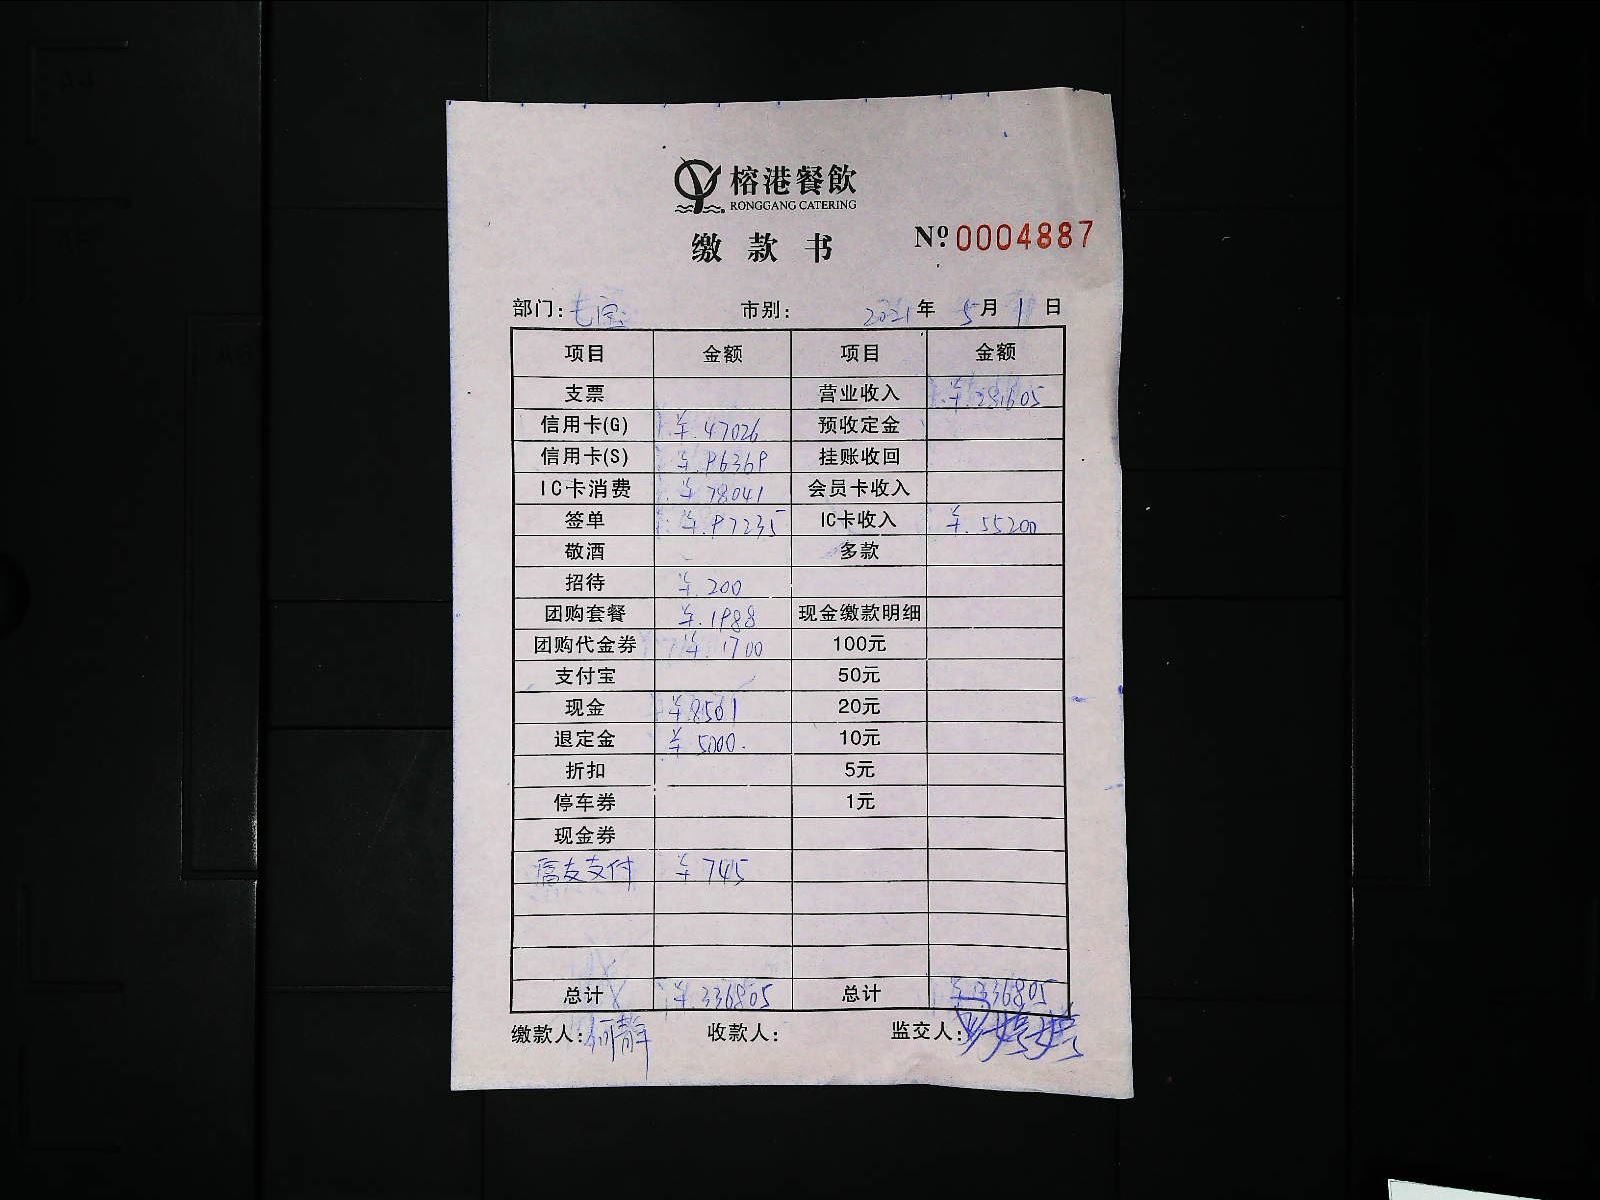 榕港餐飲
RONGGANG CATERING
缴款书 Nº 0004887
部门: 七宝 市别: 2021年 5月 1日
项目 金额 项目 金额
支票 营业收入 ¥.281605
信用卡(G) ¥.47026 预收定金
信用卡(S) ¥.96369 挂账收回
IC卡消费 ¥.78041 会员卡收入
签单 ¥.97235 IC卡收入 ¥.55200
敬酒 多款
招待 ¥.200
团购套餐 ¥.1988 现金缴款明细
团购代金券 ¥.1700 100元
支付宝 50元
现金 ¥8501 20元
退定金 ¥5000. 10元
折扣 5元
停车券 1元
现金券
富友支付 ¥745
总计 ¥.336805 总计 ¥.336805
缴款人: 何静 收款人: 监交人: 罗婷婷